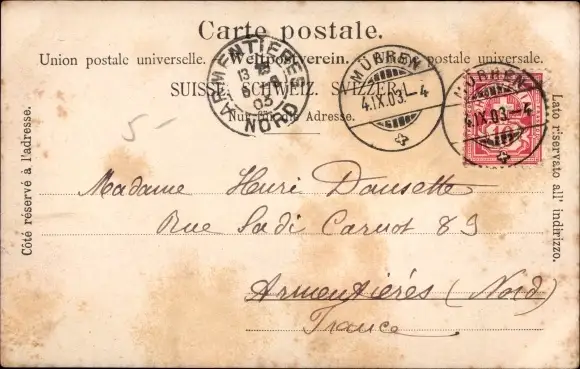 Carte postale.
Union postale universelle. Weltpostverein. Unione postale universale.
SUISSE. SCHWEIZ. SVIZZERA.
Nur für die Adresse.
Côté réservé à l'adresse.
Lato riservato all' indirizzo.
ARMENTIERES
13
6 9
03
NORD
MÜRREN
4.IX.03.-4
MÜRREN
4.IX.03.-4
10
5-
Madame Henri Dansette
Rue Sadi Carnot 89
Armentiérés (Nord)
France